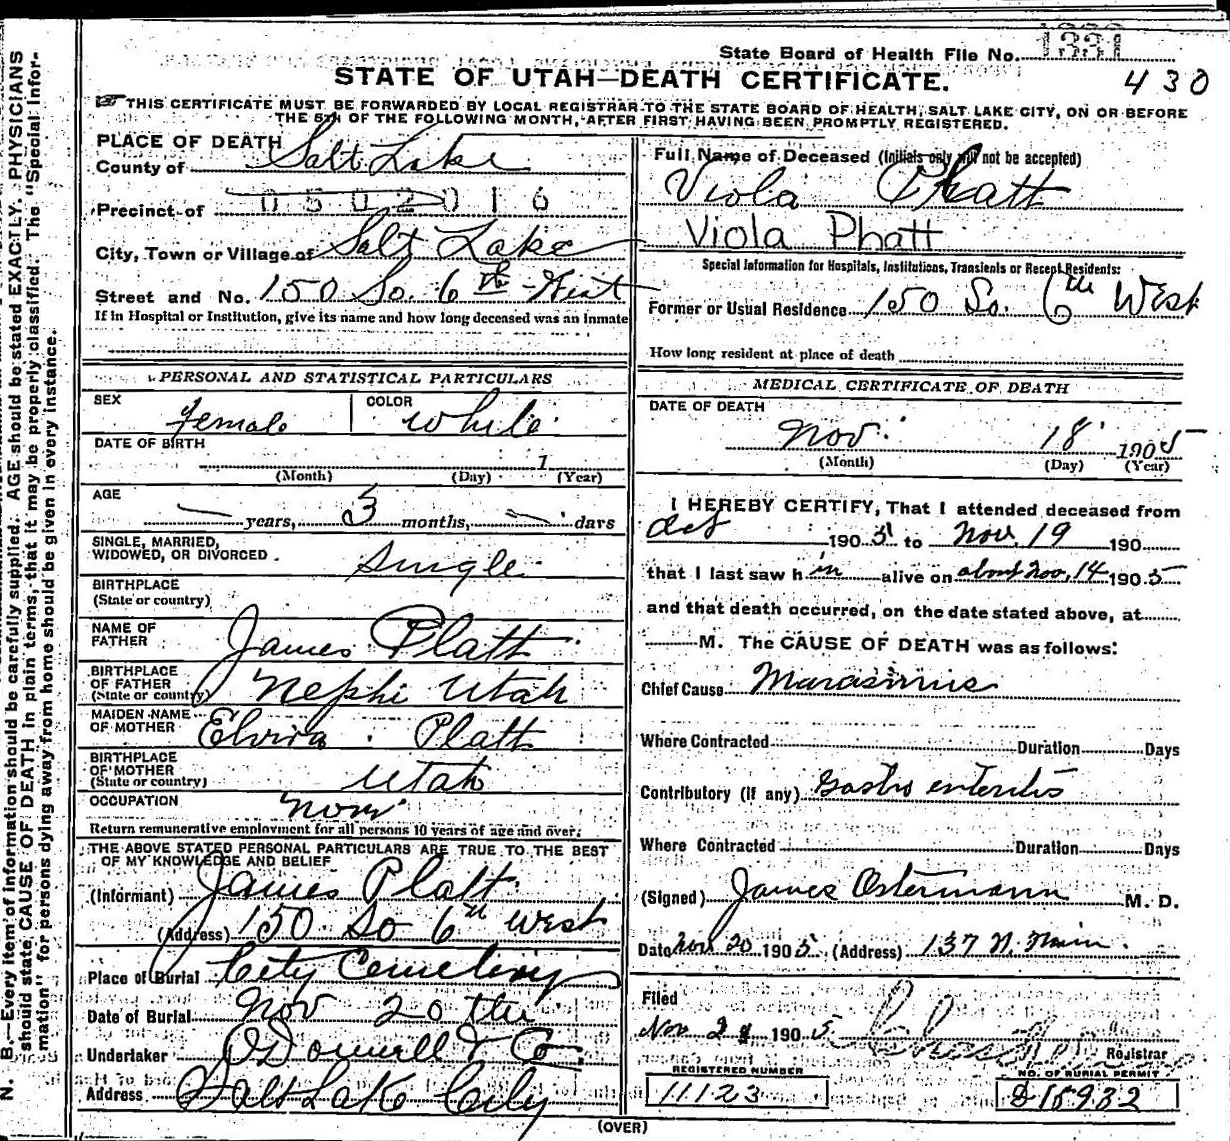 State Board of Health File No. 1331
430
STATE OF UTAH—DEATH CERTIFICATE.
THIS CERTIFICATE MUST BE FORWARDED BY LOCAL REGISTRAR TO THE STATE BOARD OF HEALTH, SALT LAKE CITY, ON OR BEFORE
THE 5TH OF THE FOLLOWING MONTH, AFTER FIRST HAVING BEEN PROMPTLY REGISTERED.
PLACE OF DEATH
County of Salt Lake
Precinct of 0502016
City, Town or Village of Salt Lake
Street and No. 150 So. 6th West
If in Hospital or Institution, give its name and how long deceased was an inmate
PERSONAL AND STATISTICAL PARTICULARS
SEX COLOR
Female White
DATE OF BIRTH
1
(Month) (Day) (Year)
AGE
— years, 3 months, — days
SINGLE, MARRIED,
WIDOWED, OR DIVORCED. Single
BIRTHPLACE
(State or country)
NAME OF
FATHER James Platt
BIRTHPLACE
OF FATHER
(State or country) Nephi Utah
MAIDEN NAME
OF MOTHER Elvira Platt
BIRTHPLACE
OF MOTHER
(State or country) Utah
OCCUPATION
Return remunerative employment for all persons 10 years of age and over.
THE ABOVE STATED PERSONAL PARTICULARS ARE TRUE TO THE BEST
OF MY KNOWLEDGE AND BELIEF
(Informant) James Platt
(Address) 150 So 6th West
Place of Burial City Cemetery
Date of Burial Nov 20th
Undertaker O'Donnell & Co.
Address Salt Lake City
Full Name of Deceased (Initials only will not be accepted)
Viola Phatt
Viola Phatt
Special Information for Hospitals, Institutions, Transients or Recent Residents:
Former or Usual Residence 150 So. 6th West
How long resident at place of death
MEDICAL CERTIFICATE OF DEATH
DATE OF DEATH
Nov. 18 1905
(Month) (Day) (Year)
I HEREBY CERTIFY, That I attended deceased from
Oct 1905 to Nov. 19 190
that I last saw h im alive on about Nov. 14 1905
and that death occurred, on the date stated above, at
M. The CAUSE OF DEATH was as follows:
Chief Cause Marasmus
Where Contracted Duration Days
Contributory (if any) Gastro enteritis
Where Contracted Duration Days
(Signed) James Ostermann M. D.
Date Nov. 20 1905. (Address) 137 N. Main.
Filed
Nov 21 1905
Registrar
REGISTERED NUMBER
11123
NO. OF BURIAL PERMIT
D15932
(OVER)
N. B.—Every item of information should be carefully supplied. AGE should be stated EXACTLY. PHYSICIANS
should state CAUSE OF DEATH in plain terms, that it may be properly classified. The "Special Infor-
mation" for persons dying away from home should be given in every instance.